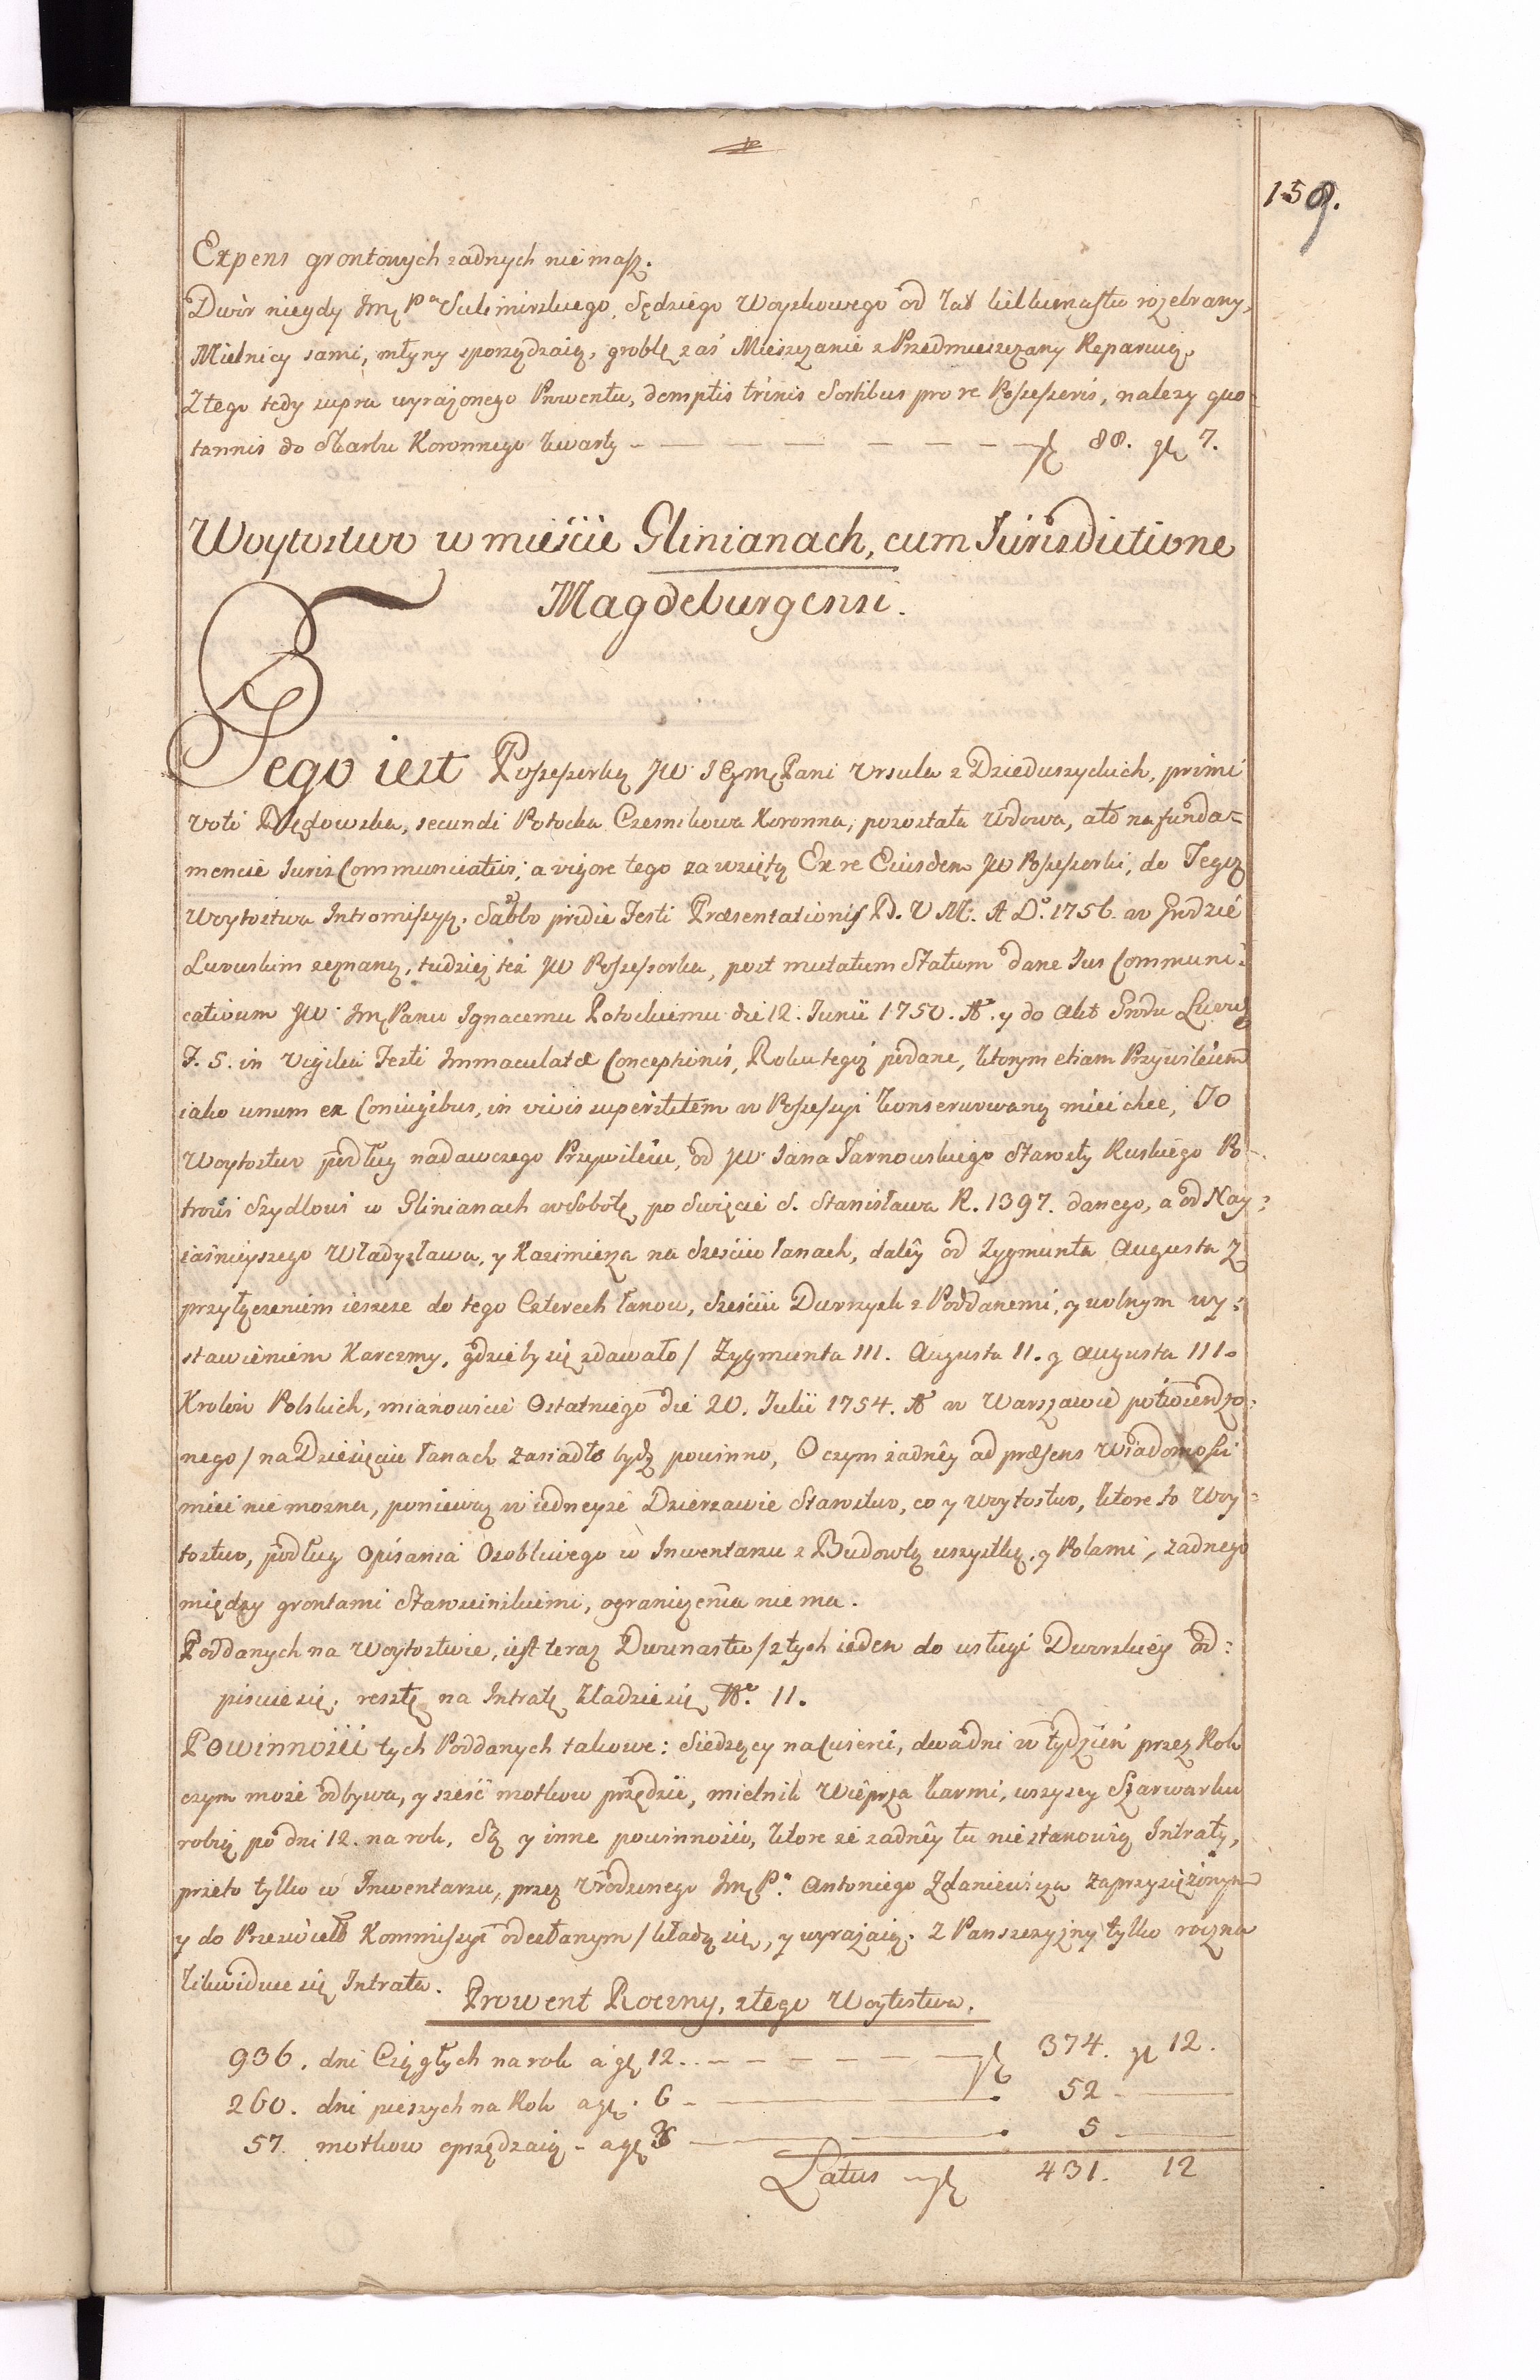 159.
Expens grontowych zadnych nie masz.
Dwór niegdy Jmę Pa Sulimirskiego, Sędziego Woyskowego od lat kilkunastu rozebrany,
Mielnicy sami, młyny sporządzaią, groblę zaś Mieszczanie z Przedmieszczany Reparuią.
Z tego tedy supra wyrażonego Prowentu, demptis trinis Sortibus pro re Possessoris, należy quo-
tannis do Skarbu Koronnego kwarty — zł 88. gr 7.
Woytostwo w mieście Glinianach, cum Jurisdictione
Magdeburgensi.
Tego iest Possessorką JW JEymę Pani Ursula z Dzieduszyckich, primi
voti Dłędowska, secundi Potocka Czesnikowa Koronna, pozostała Wdowa, ato na funda-
mencie Juris Communicativi; a vigore tego zawziętą Ex re Eiusdem JW Possessorki, do Tegoż
Woytostwa Intromissyą. Sabbo pridie Festi Præsentationis B. V. M. A Do. 1756. w Grodzie
Lwowskim zeznaną, tudzież też JW Possessorka, post mutatum Statum dane Jus Communi-
cativum JW Jmę Panu Ignacemu Potockiemu die 12. Junii 1750. Ao. y do Akt Grodu Lwow
F. 5. in Vigilia Festi Immaculatæ Conceptionis, Roku tegoż podane, ktorym etiam Przywileiem
iako unum ex Coniugibus, in vivis superstitem w Possessyi konserwowaną mieć chce, To
Woytostwo podług nadawczego Przywileiu, od JW Jana Tarnowskiego Starosty Ruskiego Pio-
trowi Szydlowi w Glinianach w Sobotę po Swięcie S. Stanisława R. 1397. danego, a od Nay-
iaśnieyszego Władysława, y Kazimierza na Sześciu łanach, daley od Zygmunta Augusta z
przyłączeniem ieszcze do tego Czterech łanow, Sześciu Dworzysk z Poddanemi, y wolnym wy-
stawieniem Karczmy, gdzieby się zdawało / Zygmunta III. Augusta II. y Augusta III.
Krolów Polskich, mianowicie Ostatniego die 20. Julii 1754. Ao w Warszawie potwierdzo-
nego / na Dziesięciu łanach zasiadło bydź powinno, O czym żadnéy ad præsens Wiadomości
mieć nie można, ponieważ w iedneyże Dzierzawie Starostwo, co y Woytostwo, ktore to Woy-
tostwo, podług Opisania Osobliwego w Inwentarzu z Budowlą wszystką, y Polami, żadnego
między grontami Starościńskiemi, ograniczenia nie ma.
Poddanych na Woytostwie, iest teraz Dwunastu / z tych ieden do usługi Dworskiey od-
pisuie się, resztę na Intratę kładzie się No. 11.
Powinności tych Poddanych takowe: Siedzący na ćwierci, dwa dni w tydzień przez Rok
czym może odbywa, y sześć motkow przędzie, mielnik Wieprza karmi, wszyscy Szarwarku
robią po dni 12. na rok, Są y inne powinności, ktore że żadnéy tu nie stanowią Intraty,
przeto tylko w Inwentarzu, przez Urodzonego Jmę Pa. Antoniego Zdaniewicza zaprzysiężonym
y do Prześwietł Kommissyi odesłanym / kładą się, y wyrażaią. Z Panszczyzny tylko roczna
likwiduie się Intrata.
Prowent Roczny, z tego Woytostwa.
936. dni Ciągłych na rok a gr 12. — zł 374. gr 12.
260. dni pieszych na Rok a gr. 6 — 52 —
57. motkow oprzędzaią - a gr 3 — 5 —
Latus — zł 431. 12